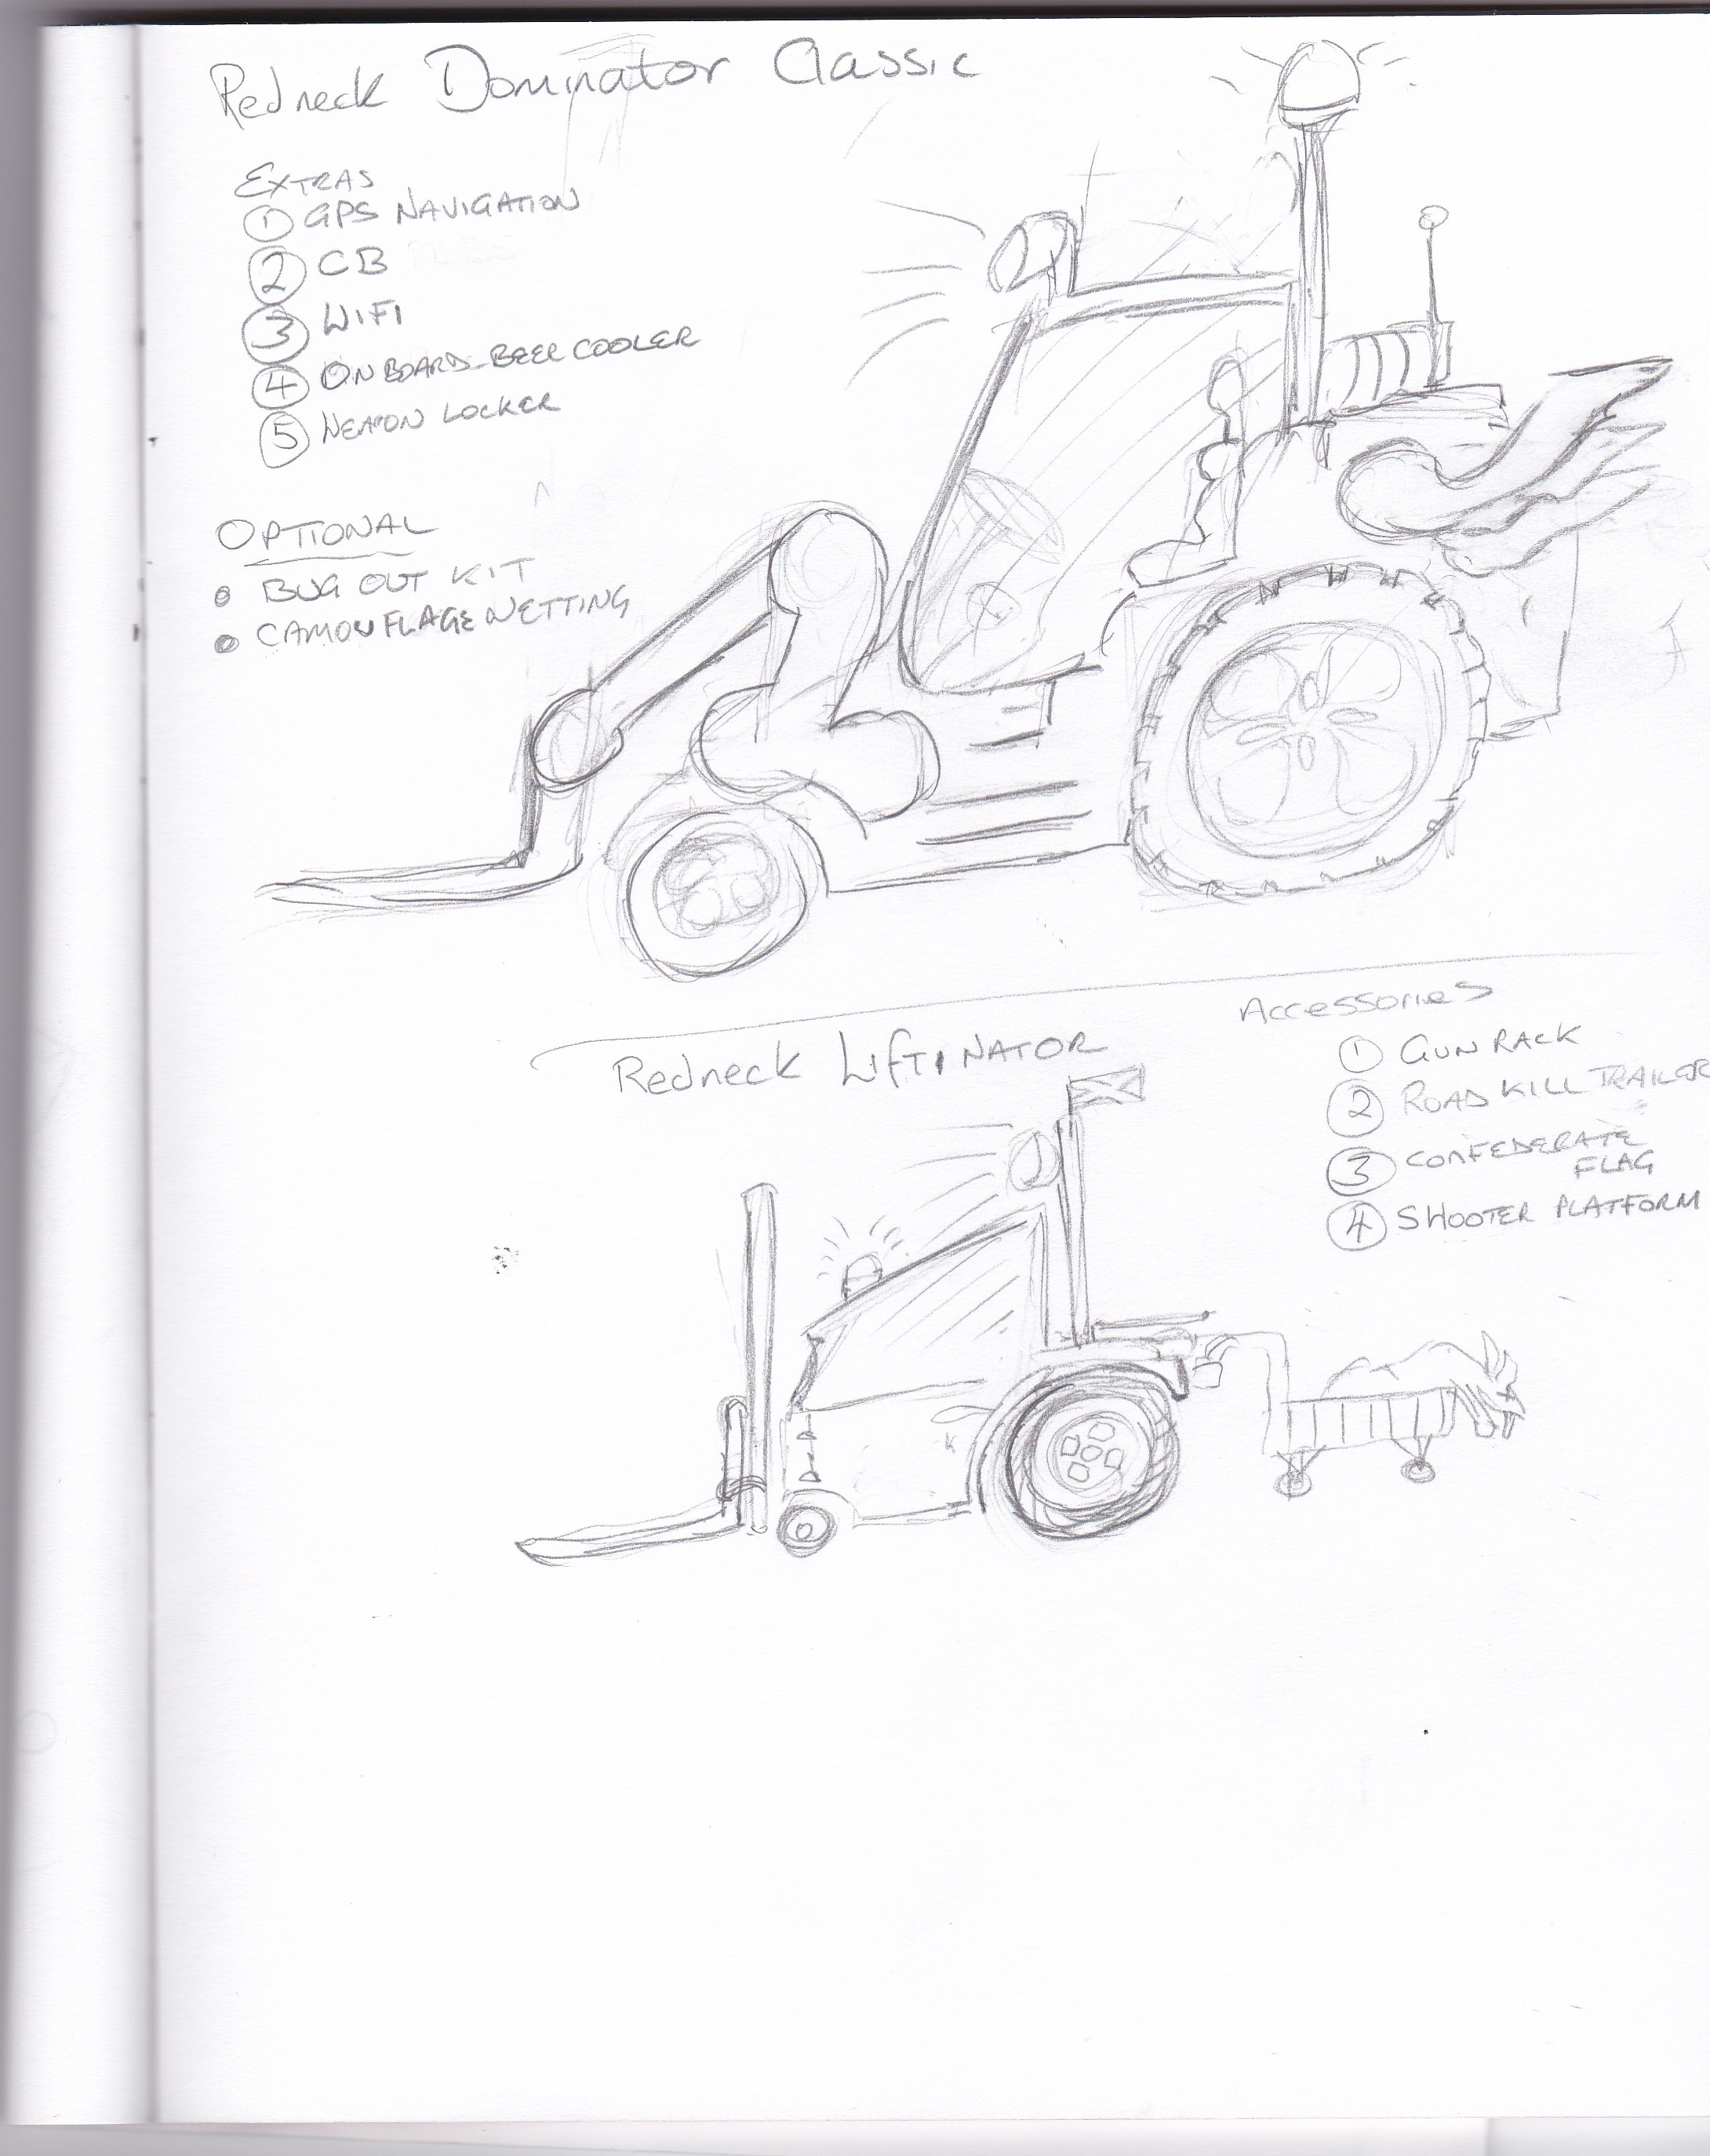 Redneck Dominator Classic
EXTRAS
1 GPS NAVIGATION
2 CB
3 WIFI
4 ON BOARD BEER COOLER
5 WEAPON LOCKER
OPTIONAL
BUG OUT KIT
CAMOUFLAGE NETTING
Redneck LIFTINATOR
Accessories
1 GUN RACK
2 ROAD KILL TRAILER
3 CONFEDERATE
FLAG
4 SHOOTER PLATFORM